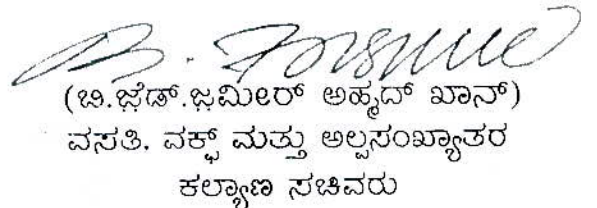 (ಬಿ.ಜೆಡ್.ಜಮೀರ್ ಅಹ್ಮದ್ ಖಾನ್)
ವಸತಿ, ವಕ್ಫ್ ಮತ್ತು ಅಲ್ಪಸಂಖ್ಯಾತರ
ಕಲ್ಯಾಣ ಸಚಿವರು